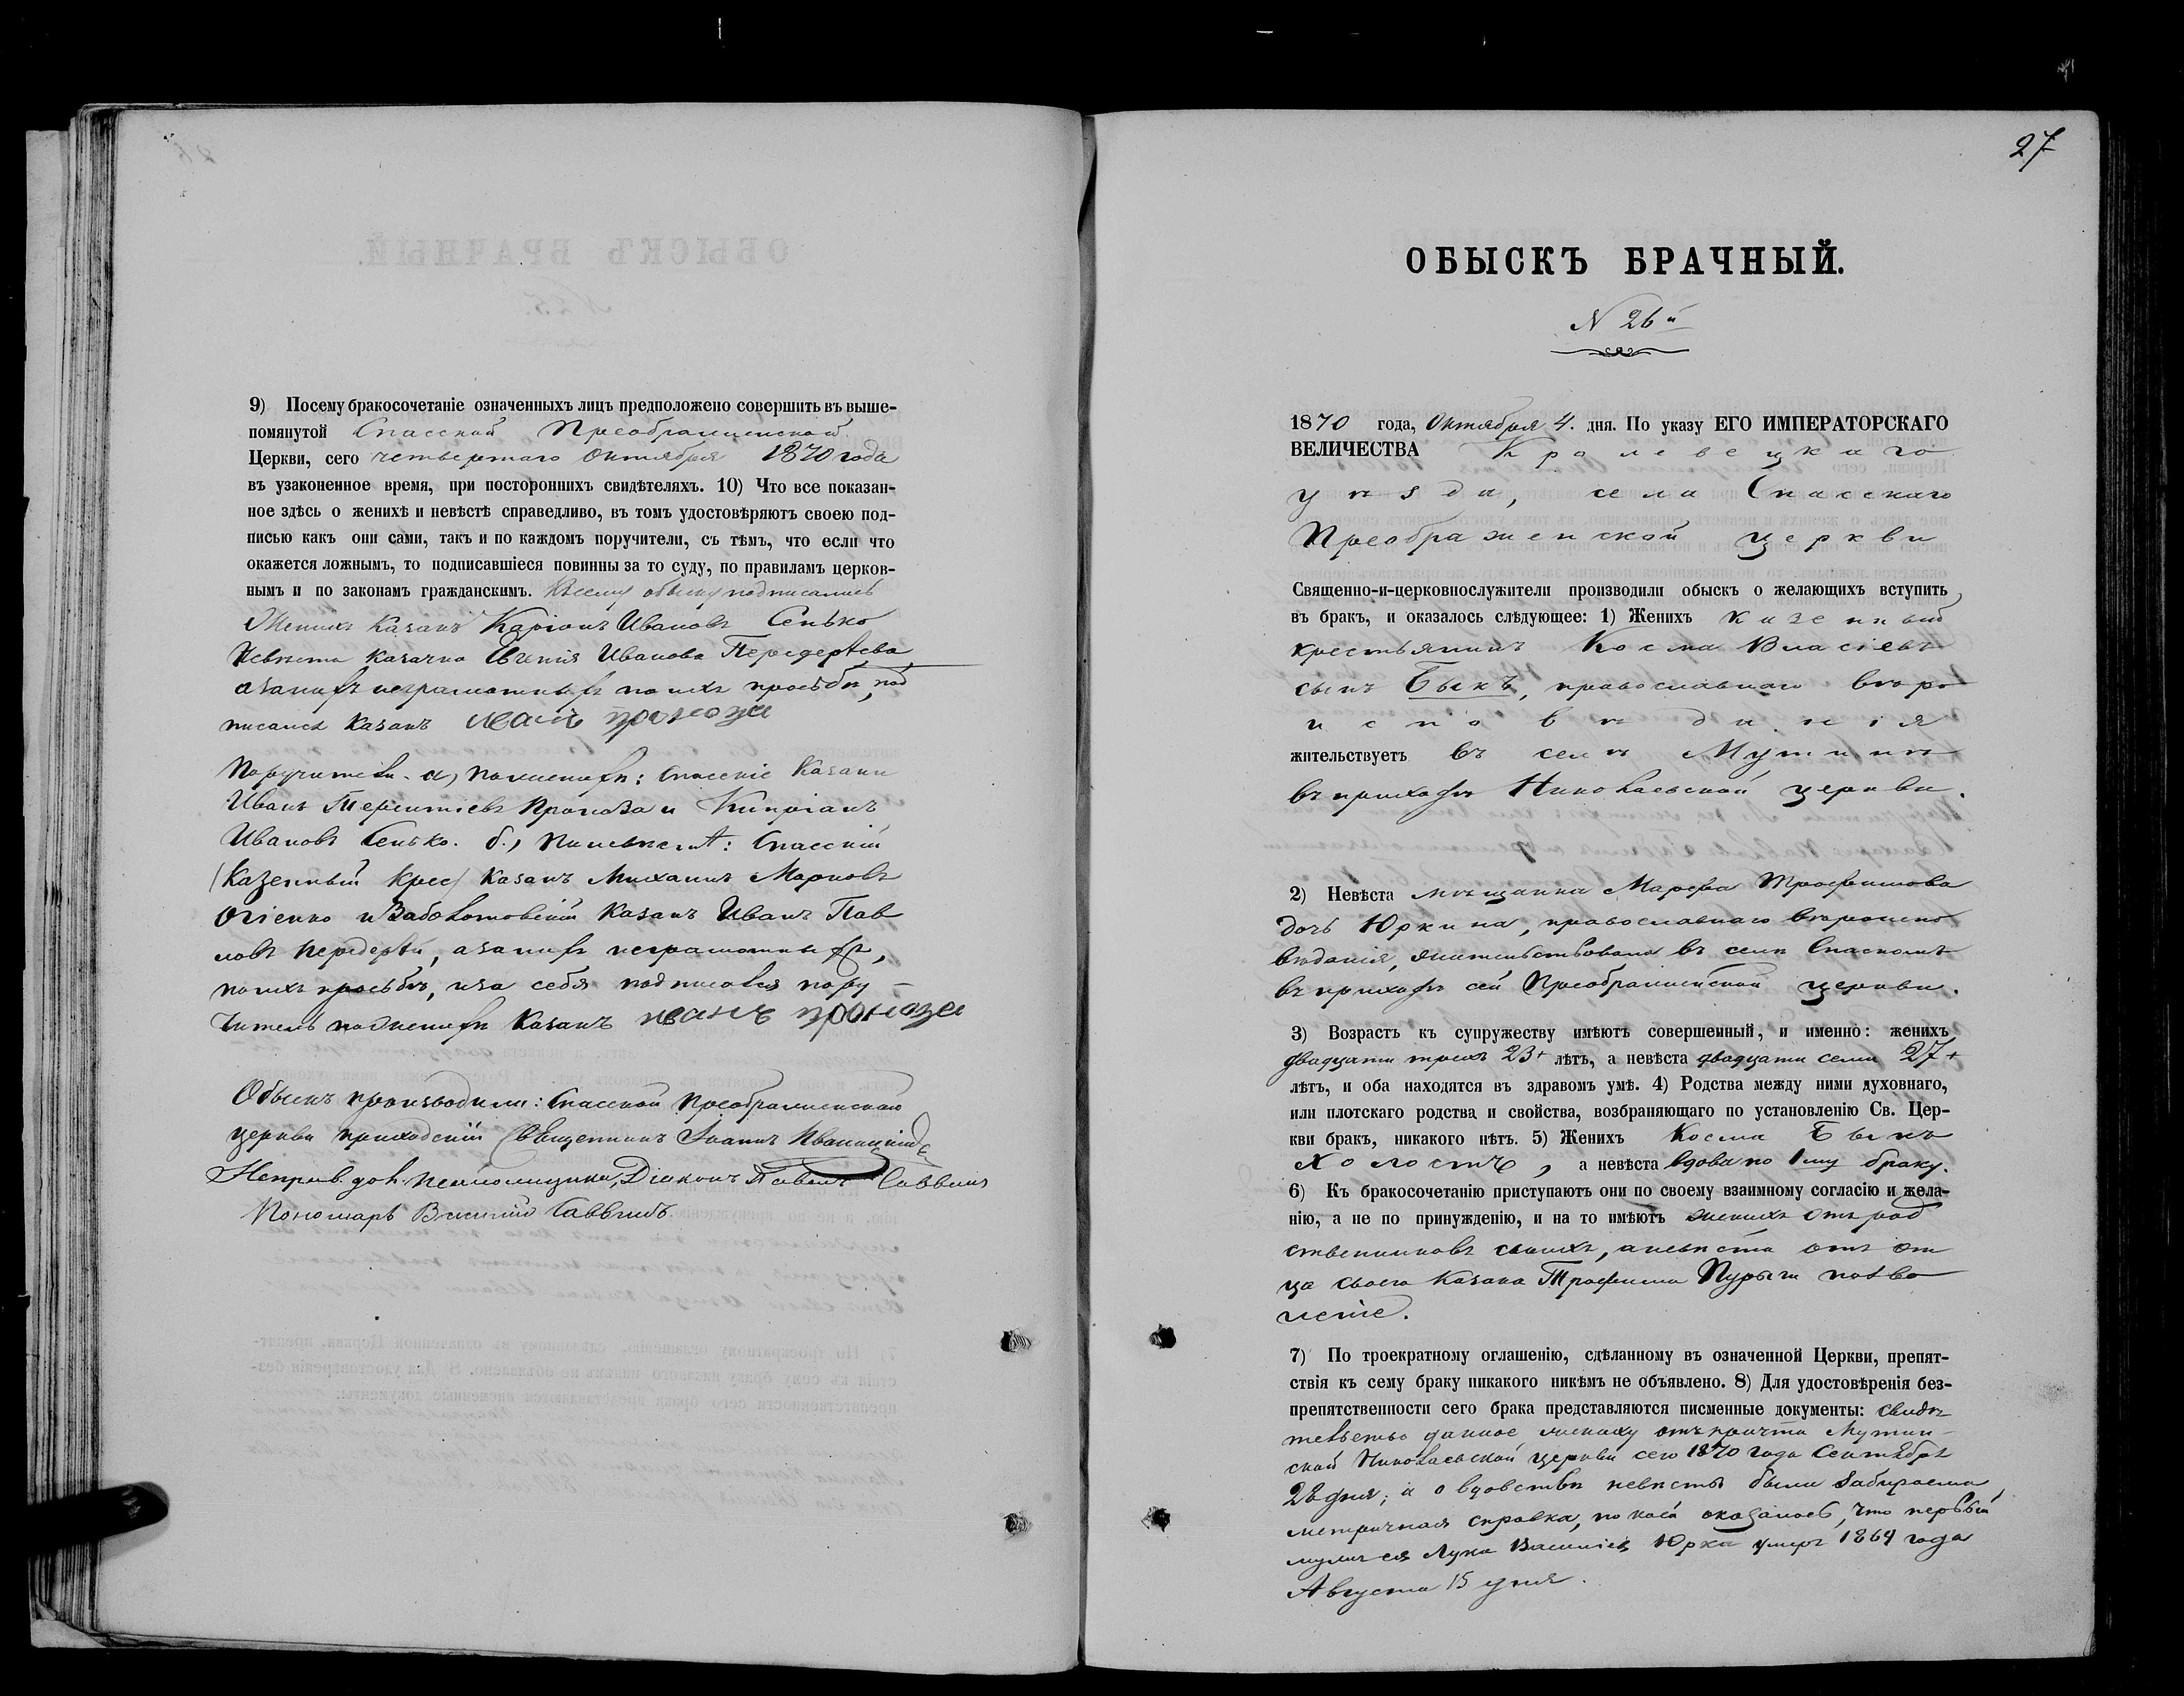 9) Посему бракосочетаніе означенныхъ лицъ предположено совершить въ выше-
помянутой Спасской Преображенской
Церкви, сего четвертаго Октября 1870 года
въ узаконенное время, при постороннихъ свидѣтеляхъ. 10) Что все показан-
ное здѣсь о женихѣ и невѣстѣ справедливо, въ томъ удостовѣряютъ своею под-
писью какъ они сами, такъ и по каждомъ поручители, съ тѣмъ, что если что
окажется ложнымъ, то подписавшіеся повинны за то суду, по правиламъ церков-
нымъ и по законамъ гражданскимъ. Къ сему обыску подписались
Женихъ казакъ Каріонъ Ивановъ Сенько
Невѣста казачка Евгенія Иванова Передерѣева
а за нихъ неграмотныхъ по ихъ просьбѣ, под
писался казакъ иванъ проноза
Поручители. а) по женихѣ: Спасскіе казаки
Иванъ Терентіевъ Проноза и Кипріанъ
Ивановъ Сенько. б.) по невѣстѣ: Спасскій
(Казенный крес) казакъ Михаилъ Марковъ
Огіенко и Заболотовскій казакъ Иванъ Пав
ловъ Передерѣй, а за нихъ неграмотныхъ,
по ихъ просьбѣ, и за себя подписался пору-
читель по женихѣ казакъ иванъ проноза
Обыскъ производили: Спасской Преображенской
церкви приходскій Священникъ Іоаннъ
Исправ. дол. псаломщика, Діаконъ Павелъ Саввичъ
Пономарь Василій Саввичъ
27
ОБЫСКЪ БРАЧНЫЙ.
N 26й
1870 года, Октября 4. дня. По указу ЕГО ИМПЕРАТОРСКАГО
ВЕЛИЧЕСТВА Кролевецкаго
уѣзда, села Спасскаго
Преображенской церкви
Священно-и-церковнослужители производили обыскъ о желающихъ вступить
въ бракъ, и оказалось слѣдующее: 1) Женихъ казенный
крестьянинъ Косма Власіевъ
сынъ Быкъ, православнаго вѣро
исповѣданія
жительствуетъ въ селѣ Мутинѣ
въ приходѣ Николаевской церкви.
2) Невѣста мѣщанка Марфа Трофимова
дочь Юркина, православнаго вѣроиспо
вѣданія, жительствовала въ селѣ Спаскомъ
въ приходѣ сей Преображенской церкви.
3) Возрастъ къ супружеству имѣютъ совершенный, и именно: женихъ
двадцати трехъ 23+ лѣтъ, а невѣста двадцати семи 27+
лѣтъ, и оба находятся въ здравомъ умѣ. 4) Родства между ними духовнаго,
или плотскаго родства и свойства, возбраняющаго по установленію Св. Цер-
кви бракъ, никакого нѣтъ. 5) Женихъ Косма Быкъ
холостъ, а невѣста вдова по 1му браку.
6) Къ бракосочетанію приступаютъ они по своему взаимному согласію и жела-
нію, а не по принужденію, и на то имѣютъ женихъ отъ род
ственниковъ своихъ, а невѣста отъ от
ца своего казака Трофима Пурыги позво
леніе.
7) По троекратному оглашенію, сдѣланному въ означенной Церкви, препят-
ствія къ сему браку никакого никѣмъ не объявлено. 8) Для удостовѣренія без-
препятственности сего брака представляются писменные документы: свидѣ
тельство данное жениху отъ причта Мутин-
ской Николаевской церкви сего 1870 года Сентября
28 дня; а о вдовствѣ невѣсты была забираема
метричная справка, по коей оказалось, что первый
мужъ ея Лука Василіевъ Юрка умеръ 1864 года
Августа 15 дня.